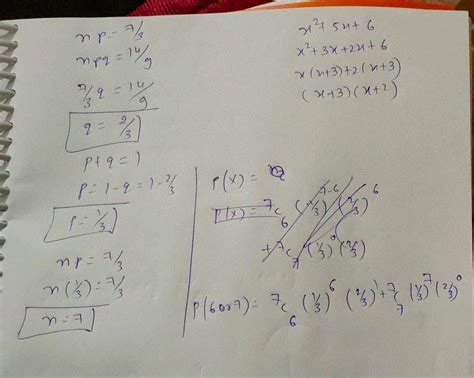 np = 7/3
npq = 14/9
7/3 q = 14/9
q = 2/3
p+q = 1
p = 1-q = 1-2/3
p = 1/3
np = 7/3
n(1/3) = 7/3
n = 7
x²+5x+6
x²+3x+2x+6
x(x+3)+2(x+3)
(x+3)(x+2)
P(x) =
P(x) = 7c6 (1/3) 7-6 (2/3)6
+7c7 (1/3)0 (2/3)
P(6or7) = 7c6 (1/3)6 (2/3)1+7c7 (1/3)7 (2/3)0